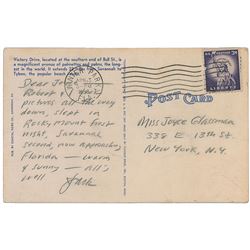 Victory Drive, located at the southern end of Bull St., is
a magnificent avenue of palmettos and palms, the long-
est in the world. It extends from Savannah to
Tybee, the popular beach
POST CARD
LIBERTY
Dear Jo
Robert
pictures all the way
down, slept in
Rocky mount first
night, Savannah
second, now approaching
Florida — warm
& sunny — all's
well
Jack
Miss Joyce Glassman
338 E 13th St.
New York, N.Y.